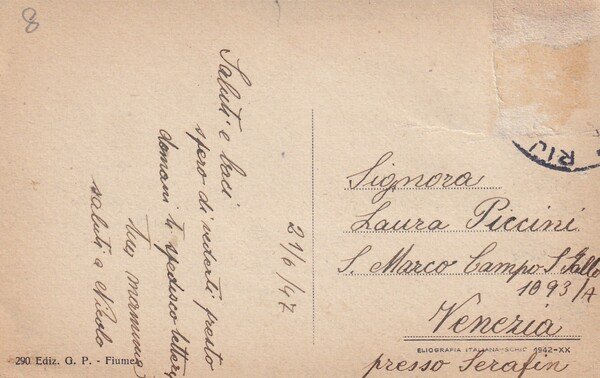 8
Saluti e baci
spero di vederti presto
domani ti spedisco lettera
Tua mamma
saluti a Nicolo
21/6/47
RIJ
Signora
Laura Piccini
S. Marco Campo S. Gallo
1093/A
Venezia
ELIOGRAFIA ITALIANA-SCHIO 1942-XX
presso Serafin
290 Ediz. G. P. - Fiume